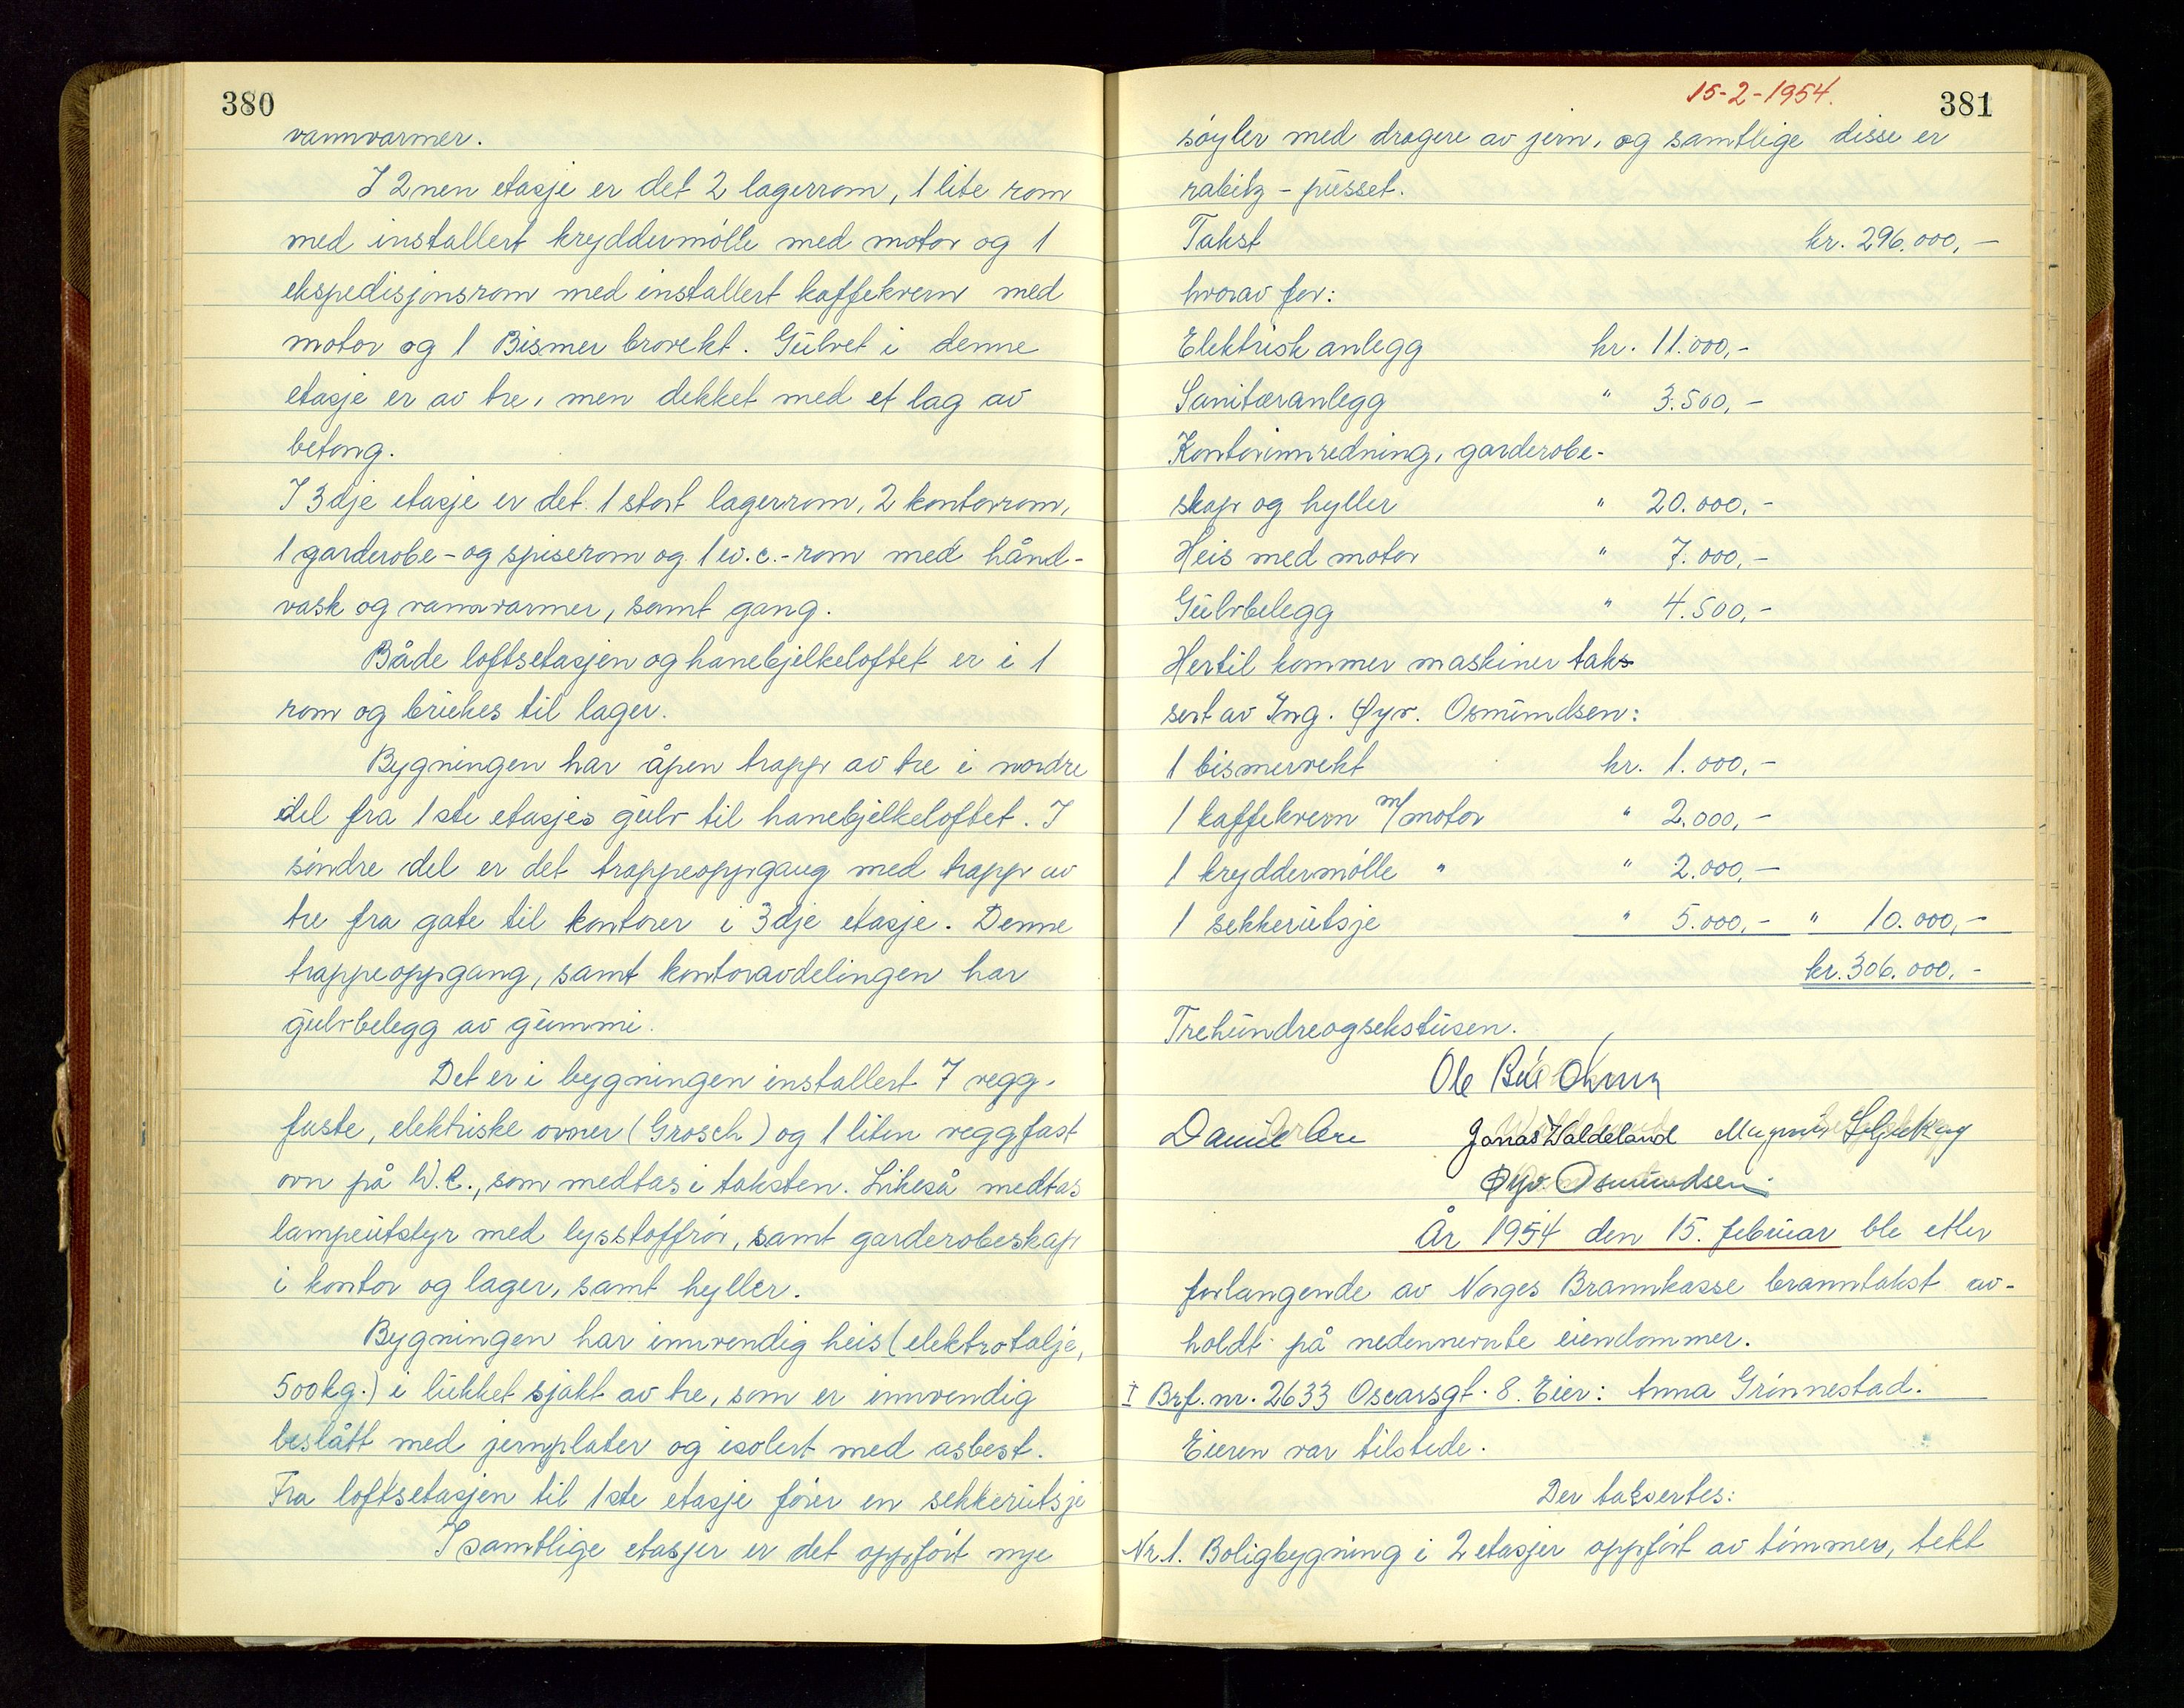 380
vannvarmer.
I 2nen etasje er det 2 lagerrom, 1 lite rom
med installert kryddermølle med motor og 1
ekspedisjonsrom med installert kaffekvern med
motor og 1 Bismer brovekt. Gulvet i denne
etasje er av tre, men dekket med et lag av
betong.
I 3dje etasje er det 1 stort lagerrom, 2 kontorrom,
1 garderobe- og spiserom og 1 w.c.-rom med hånd-
vask og vannvarmer, samt gang.
Både loftsetasjen og hanebjelkeloftet er i 1
rom og brukes til lager.
Bygningen har åpen trapp av tre i nordre
del fra 1ste etasjes gulv til hanebjelkeloftet. I
søndre del er det trappeoppgang med trapp av
tre fra gate til kontorer i 3dje etasje. Denne
trappeoppgang, samt kontoravdelingen har
gulvbelegg av gummi.
Det er i bygningen installert 7 vegg-
faste, elektriske ovner (Grosch) og 1 liten veggfast
ovn på W.C., som medtas i taksten. Likeså medtas
lampeutstyr med lysstoffrør, samt garderobeskap
i kontor og lager, samt hyller.
Bygningen har innvendig heis (elektrotalje,
500kg.) i lukket sjakt av tre, som er innvendig
beslått med jernplater og isolert med asbest.
Fra loftsetasjen til 1ste etasje fører en sekkerutsje
I samtlige etasjer er det oppført nye
15-2-1954.
381
søyler med dragere av jern, og samtlige disse er
rabitz-pusset.
Takst kr. 296.000,-
hvorav for:
Elektrisk anlegg kr. 11.000,-
Sanitæranlegg " 3.500,-
Kontorinnredning, garderobe-
skap og hyller " 20.000,-
Heis med motor " 7.000,-
Gulvbelegg " 4.500,-
Hertil kommer maskiner taks-
sert av Ing. Øyv. Osmundsen:
1 bismervekt kr. 1.000,-
1 kaffekvern m/motor " 2.000,-
1 kryddermølle " " 2.000,-
1 sekkerutsje " 5.000,- " 10.000,-
kr. 306.000,-
Trehundreogsekstusen.
Ole Bull
Daniel Jonas Waldeland Magnus
Øyv. Osmundsen
År 1954 den 15. februar ble etter
forlangende av Norges Brannkasse branntakst av-
holdt på nedennevnte eiendommer.
I Brf. nr. 2633 Oscarsgt. 8. Eier: Anna Grønnestad.
Eieren var tilstede.
Der taksertes:
Nr. 1. Boligbygning i 2 etasjer oppført av tømmer, tekt